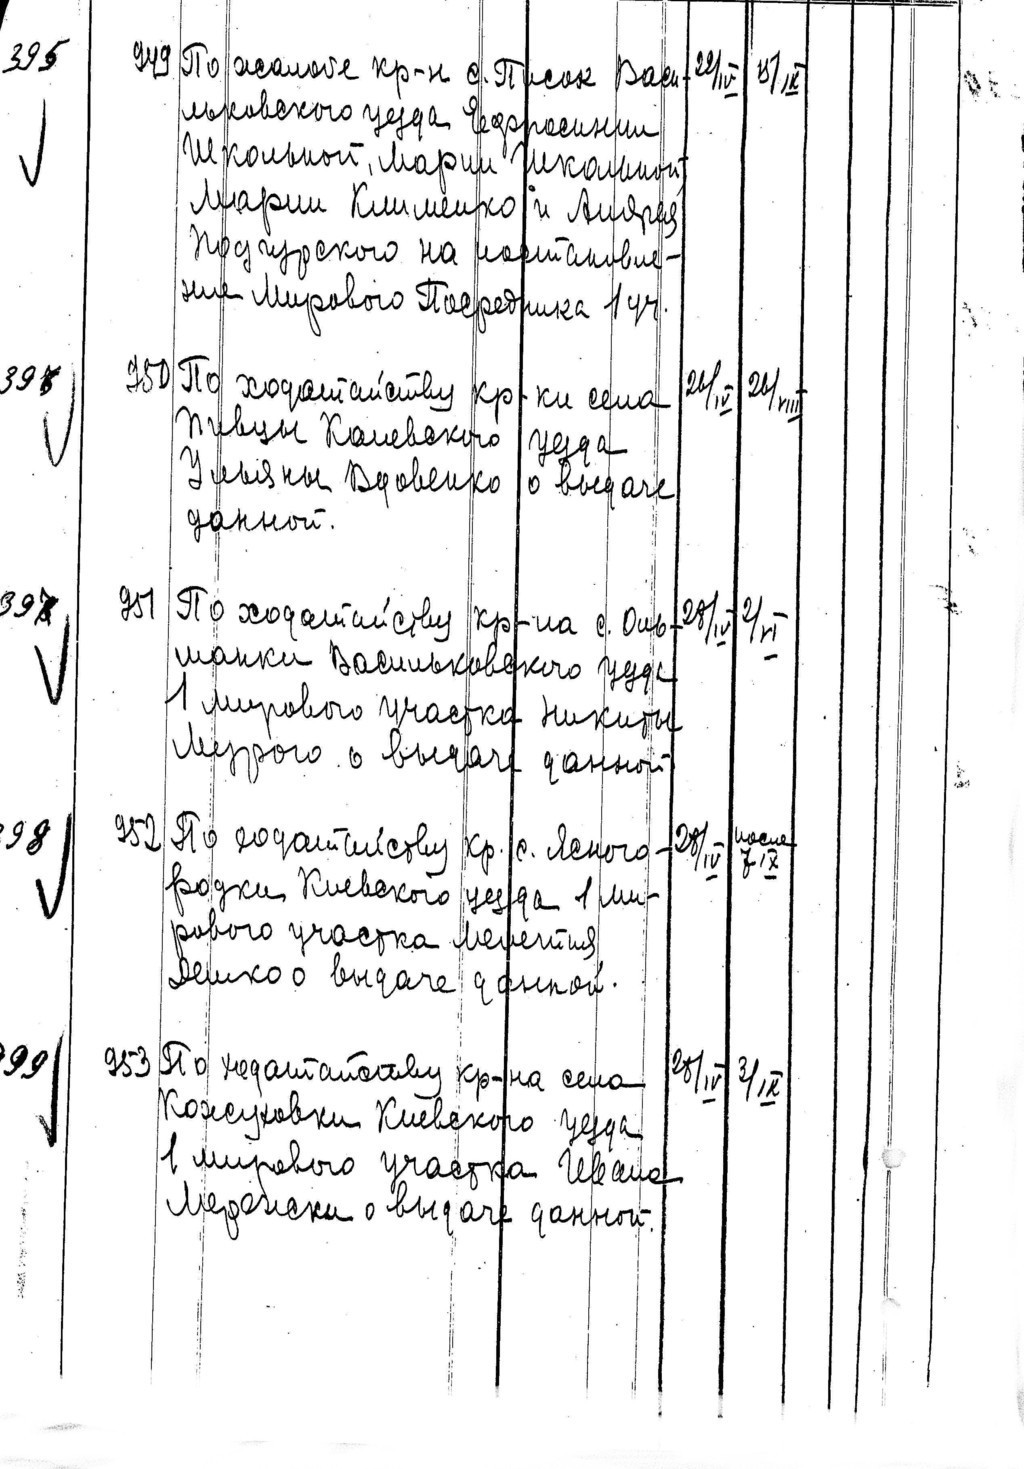 395 949 По жалобе кр-н с. Песок Васи- 22/IV 15/IX
льковского уезда Ефросинии
Школьной, Марии Школьной,
Марии Клименко и Андрея
Подгурского на постановле-
ние Мирового Посредника 1 уч.
396 950 По ходатайству кр-ки села 26/IV 26/VIII
Пивцы Каневского уезда
Ульяны Вдовенко о выдаче
данной.
397 951 По ходатайству кр-на с. Оль- 28/IV 2/VI
шанки Васильковского уезда
1 мирового участка Никиты
Мудрого о выдаче данной
398 952 По ходатайству кр. с. Ясного- 28/IV после 7 IX
родки Киевского уезда 1 ми-
рового участка Мелетия
Лешко о выдаче данной.
399 953 По ходатайству кр-на села 28/IV 3/IX
Кожуховки Киевского уезда
1 мирового участка Ивана
о выдаче данной.